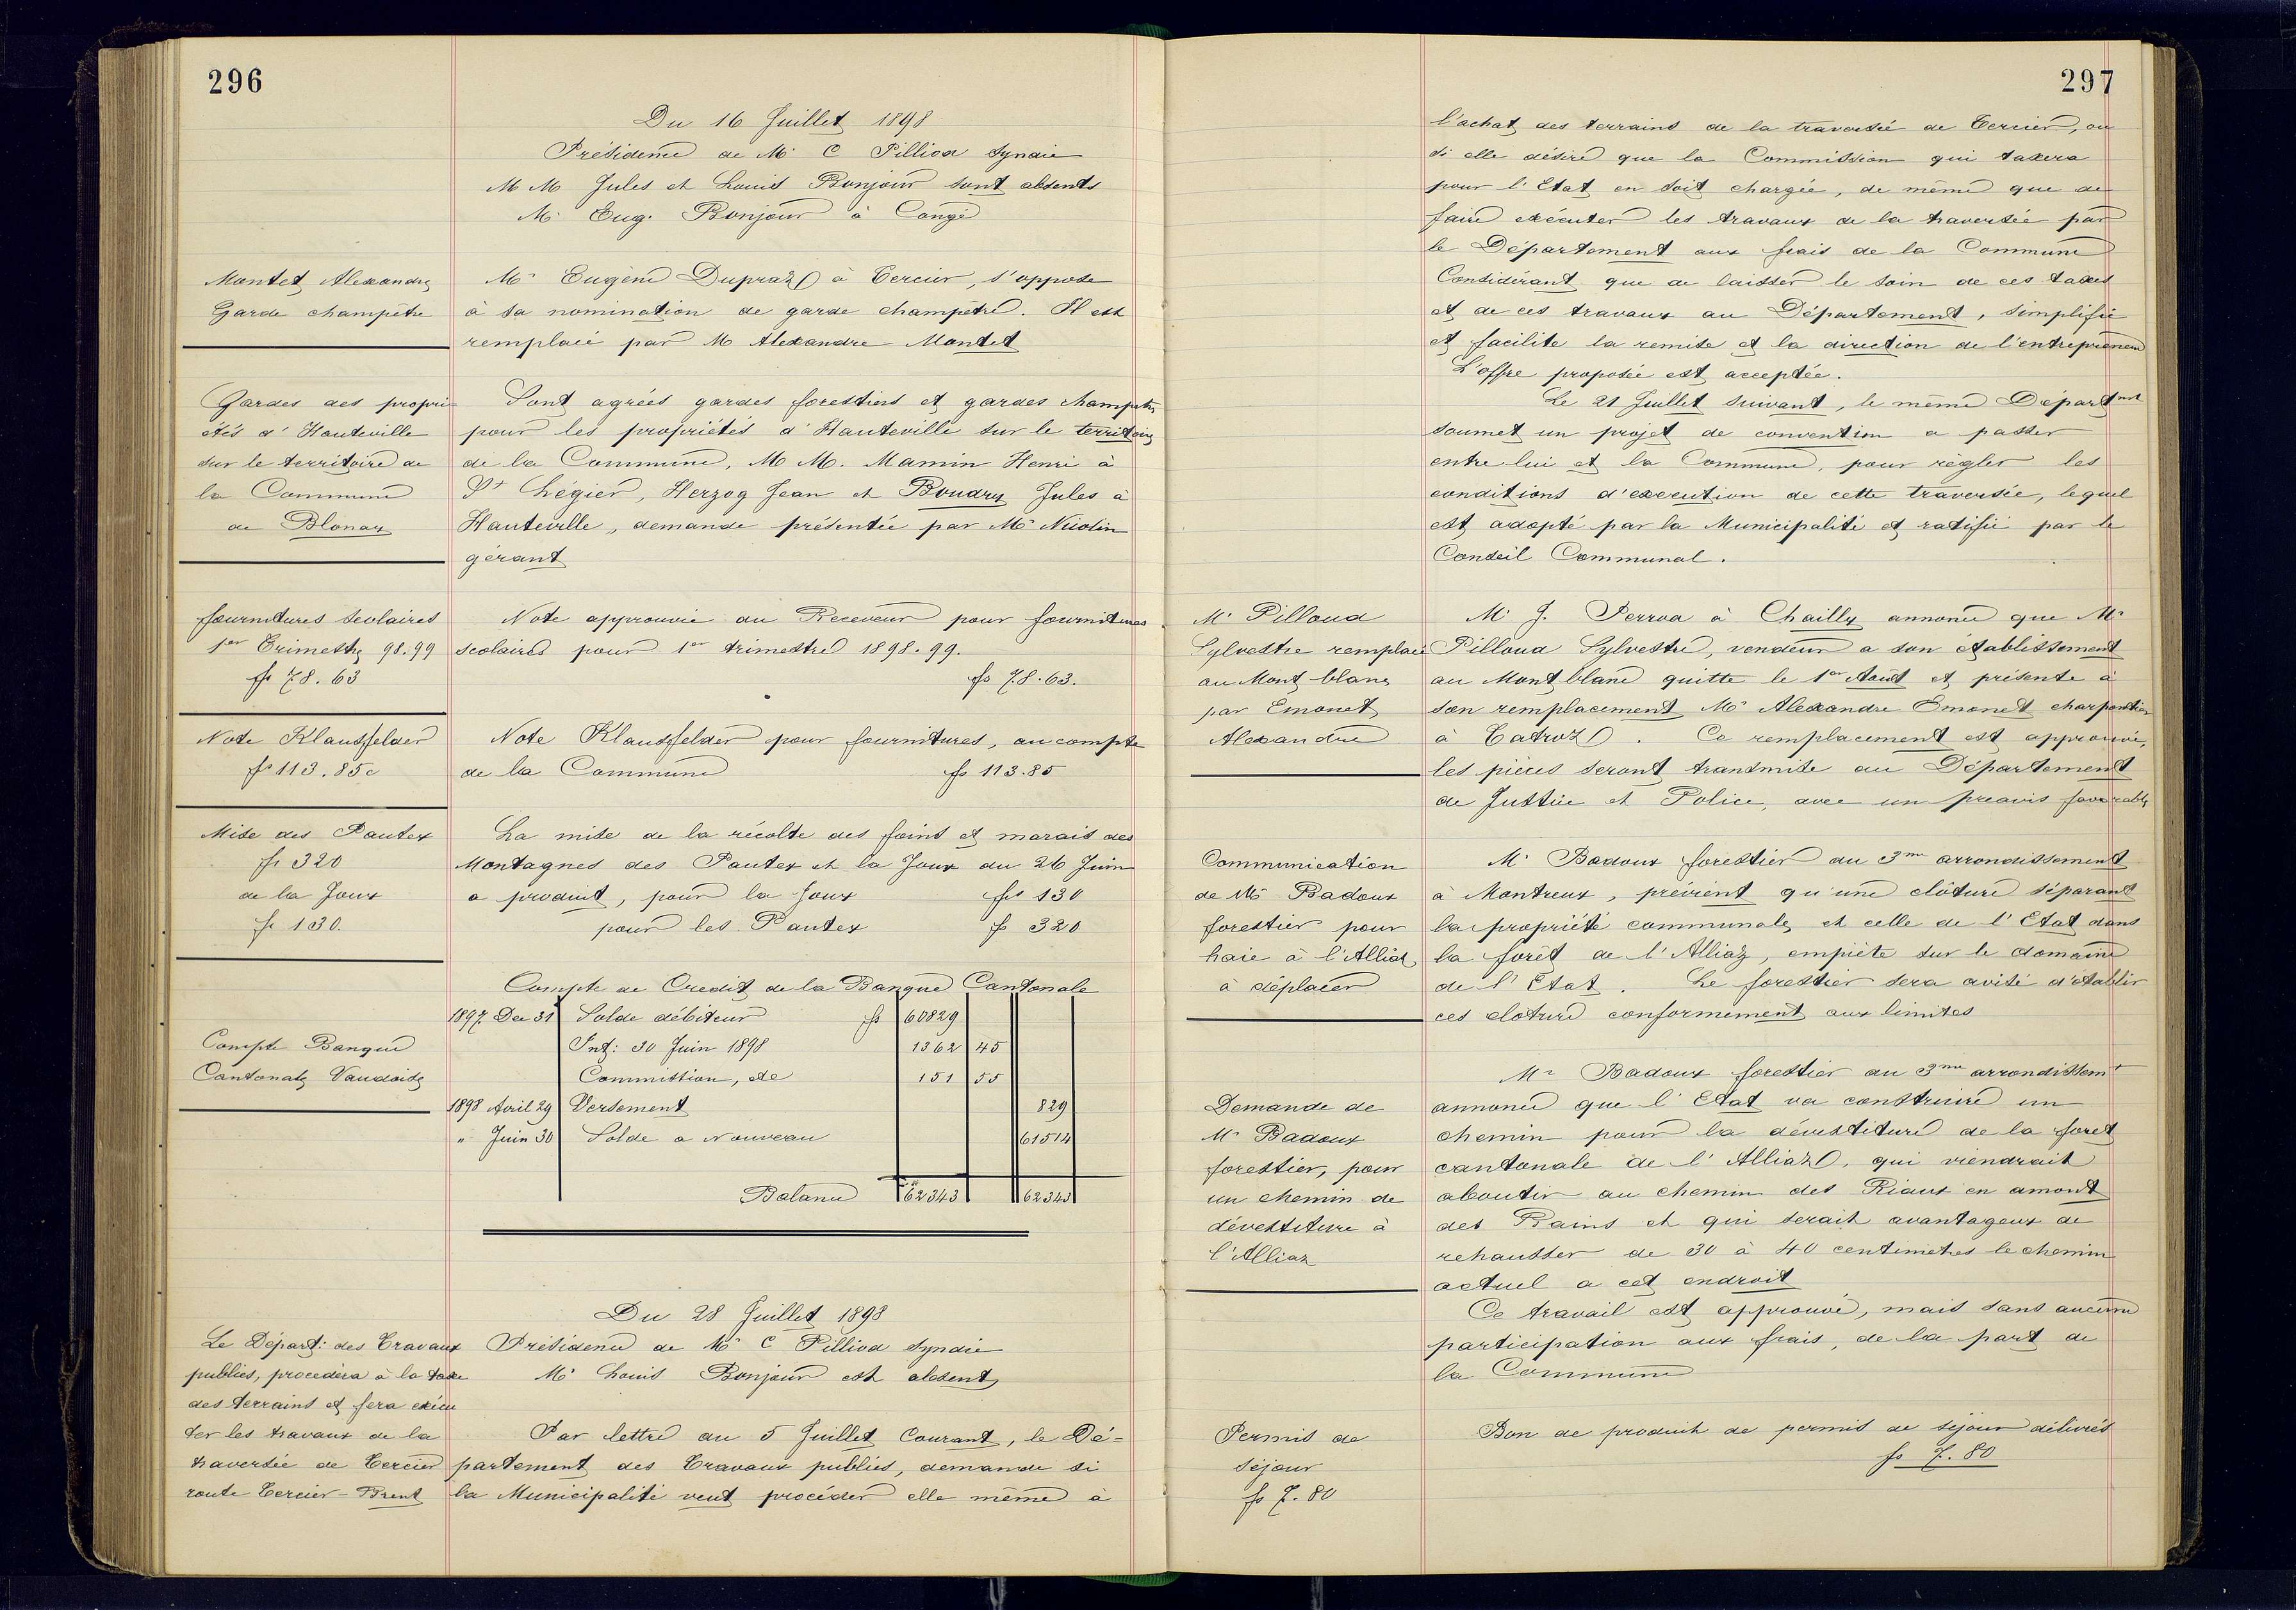 296
Du 16 Juillet 1898
Présidence de Mr C Pilliod Syndic
M M Jules et Louis Bonjour sont absents
Mr Eug. Bonjour à Congé
Montet Alexandre
Garde champêtre
Mr Eugène Dupraz à Tercier, s'oppose
à sa nomination de garde champêtre. Il est
remplacé par M Alexandre Montet
Gardes des propri-
étés d'Hauteville
sur le territoire de
la Commune
de Blonay
Sont agréés gardes forestiers et gardes champêtres
pour les propriétés d'Hauteville sur le territoire
de la Commune, M M. Mamin Henri à
St Légier, Herzog Jean et Boudry Jules à
Hauteville, demande présentée par Mr Nicolin
gérant
fournitures scolaires
1er Trimestre 98.99
fr 78.63
Note approuvée au Receveur pour fournitures
scolaires pour 1er trimestre 1898.99.
frs 78.63.
Note Klausfelder
frs 113.85c
Note Klausfelder pour fournitures, au compte
de la Commune frs 113.85
Mise des Pautex
fr 320
de la Joux
fr 130.
La mise de la récolte des foins et marais des
Montagnes des Pautex et la Joux du 26 Juin
a produit, pour la Joux frs 130
pour les Pautex fr 320
Compte Banque
Cantonale Vaudoise
Compte de Crédit de la Banque Cantonale
1897 Dec 31 Solde débiteur frs 60829
Int: 30 Juin 1898 1362 45
Commission, etc 151 55
1898 Avril 29 Versement 829
" Juin 30 Solde a Nouveau 61514
Balance 62343 62343
Du 28 Juillet 1898
Présidence de Mr C Pilliod Syndic
Mr Louis Bonjour est absent
Le Départ: des Travaux
publics, procèdera à la taxe
des terrains et fera exécu
ter les travaux de la
traversée de Tercier
route Tercier-Brent
Par lettre du 5 Juillet Courant, le Dé=
partement des Travaux publics, demande si
la Municipalité veut procéder elle même à
297
l'achat des terrains de la traversée de Tercier, ou
si elle désire que la Commission qui taxera
pour l'Etat en soit chargée, de même que de
faire exécuter les travaux de la traversée par
le Département aux frais de la Commune
Considérant que de laisser le soin de ces taxes
et de ces travaux au Département, simplifie
et facilite la remise et la direction de l'entrepreneur
L'offre proposée est acceptée.
Le 21 Juillet suivant, le même Départmt
soumet un projet de convention a passer
entre lui et la Commune, pour règler les
conditions d'execution de cette traversée, lequel
est adopté par la Municipalité et ratifié par le
Conseil Communal.
Mr Pilloud
Sylvestre remplacé
au Mont blanc
par Emonet
Alexandre
Mr J. Perrod à Chailly annonce que Mr
Pilloud Sylvestre, vendeur a son établissement
au Mont blanc quitte le 1er Août et présente à
son remplacement Mr Alexandre Emonet charpentier
à Tatroz. Ce remplacement est approuvé,
les pièces seront transmise au Département
de Justice et Police, avec un préavis favorable
Communication
de Mr Badoux
forestier pour
haie à l'Alliaz
à déplacer
Mr Badoux forestier du 3me arrondissement
à Montreux, prévient qu'une clôture séparant
la propriété communale, et celle de l'Etat dans
la forêt de l'Alliaz, empiète sur le domaine
de l'Etat. Le forestier sera avisé d'établir
ces clôture conformément aux limites
Demande de
Mr Badoux
forestier, pour
un chemin de
dévestiture à
l'Alliaz
Mr Badoux forestier du 3me arrondissemt
annonce que l'Etat va construire un
chemin pour la dévestiture de la foret
cantonale de l'Alliaz, qui viendrait
aboutir au chemin des Riaux en amont
des Bains et qui serait avantageux de
rehausser de 30 à 40 centimètres le chemin
actuel a cet endroit
Ce travail est approuvé, mais sans aucune
participation aux frais, de la part de
la Commune
Permis de
séjour
fr 7.80
Bon de produit de permis de séjour délivrés
fr 7.80